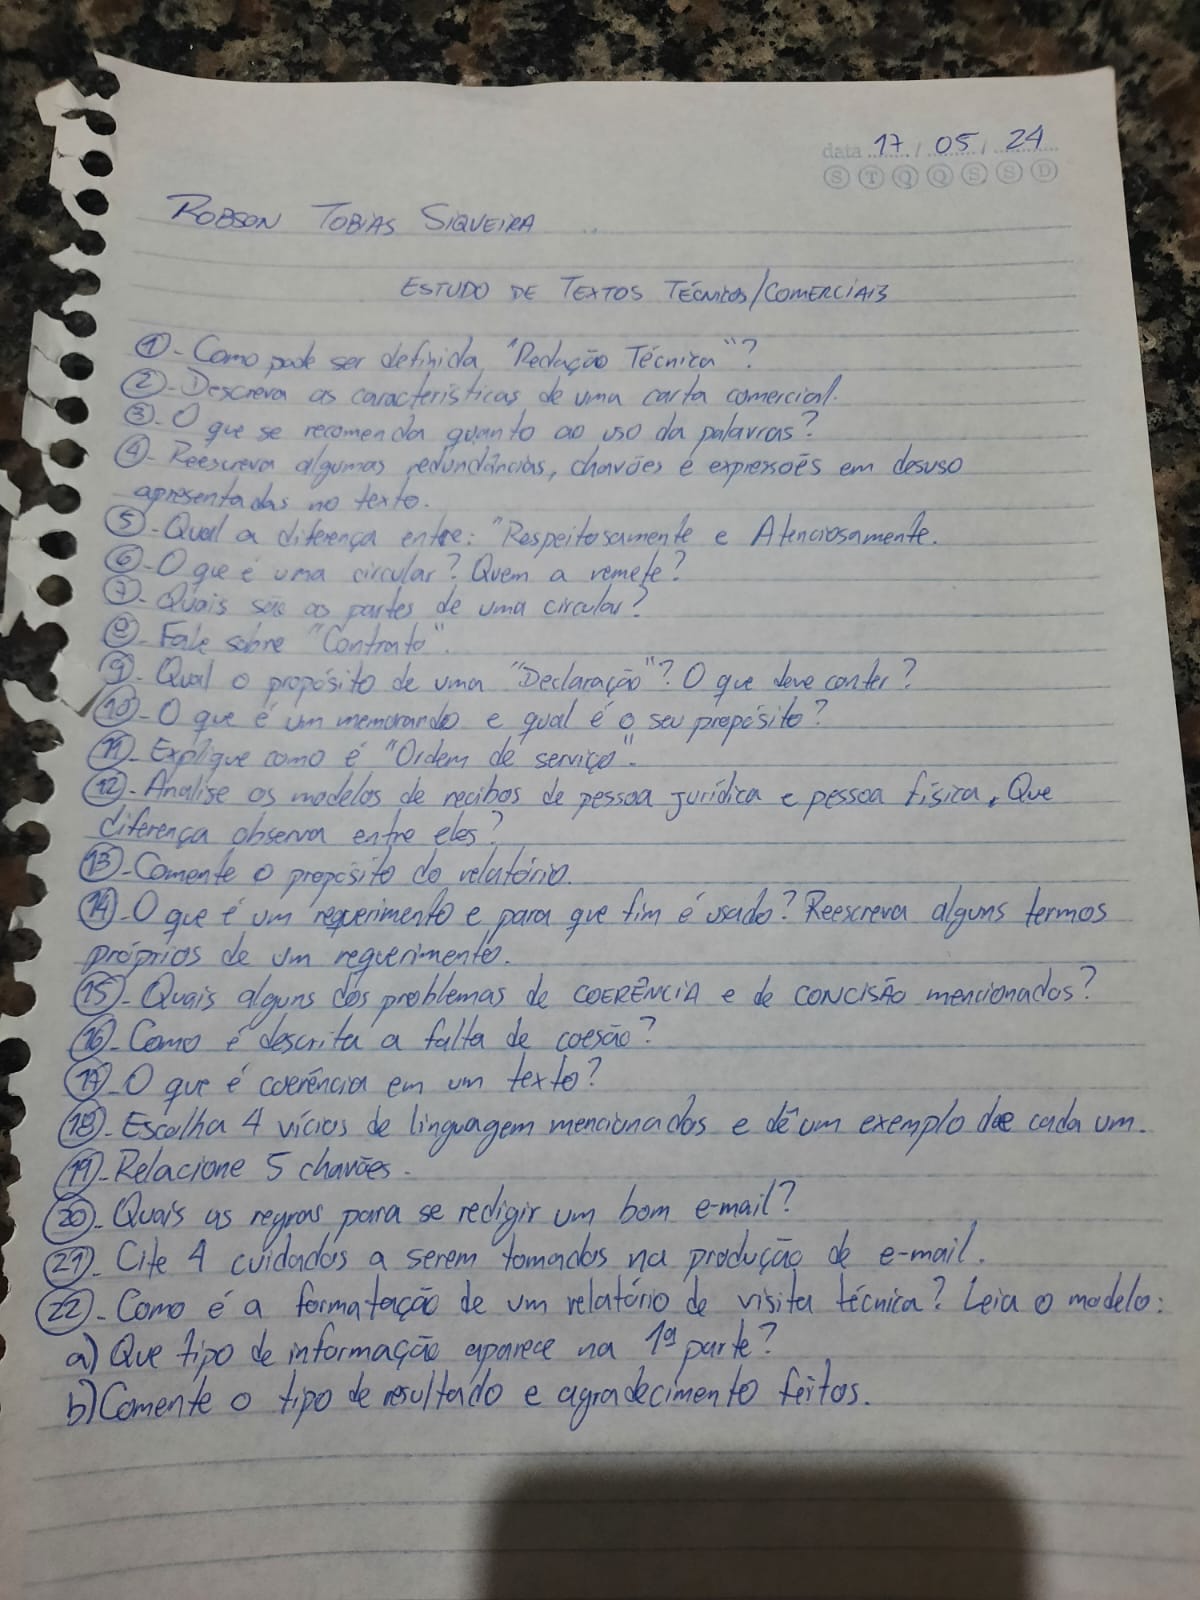 data 17 / 05 / 24
S T Q Q S S D
ROBSON TOBIAS SIQUEIRA
ESTUDO DE TEXTOS TÉCNICOS/COMERCIAIS
1- Como pode ser definida "Redação Técnica"?
2- Descreva as características de uma carta comercial.
3- O que se recomenda quanto ao uso da palavras?
4- Reescreva algumas redundâncias, chavões e expressões em desuso
apresentadas no texto.
5- Qual a diferença entre: "Respeitosamente e Atenciosamente.
6- O que é uma circular? Quem a remete?
7- Quais são as partes de uma circular?
8- Fale sobre "Contrato".
9- Qual o propósito de uma "Declaração"? O que deve conter?
10- O que é um memorando e qual é o seu propósito?
11- Explique como é "Ordem de serviço".
12- Analise os modelos de recibos de pessoa jurídica e pessoa física. Que
diferença observa entre eles?
13- Comente o propósito do relatório.
14- O que é um requerimento e para que fim é usado? Reescreva alguns termos
próprios de um requerimento.
15- Quais alguns dos problemas de COERÊNCIA e de CONCISÃO mencionados?
16- Como é descrita a falta de coesão?
17- O que é coerência em um texto?
18- Escolha 4 vícios de linguagem mencionados e dê um exemplo de cada um.
19- Relacione 5 chavões.
20- Quais as regras para se redigir um bom e-mail?
21- Cite 4 cuidados a serem tomados na produção de e-mail.
22- Como é a formatação de um relatório de visita técnica? Leia o modelo:
a) Que tipo de informação aparece na 1ª parte?
b) Comente o tipo de resultado e agradecimento feitos.